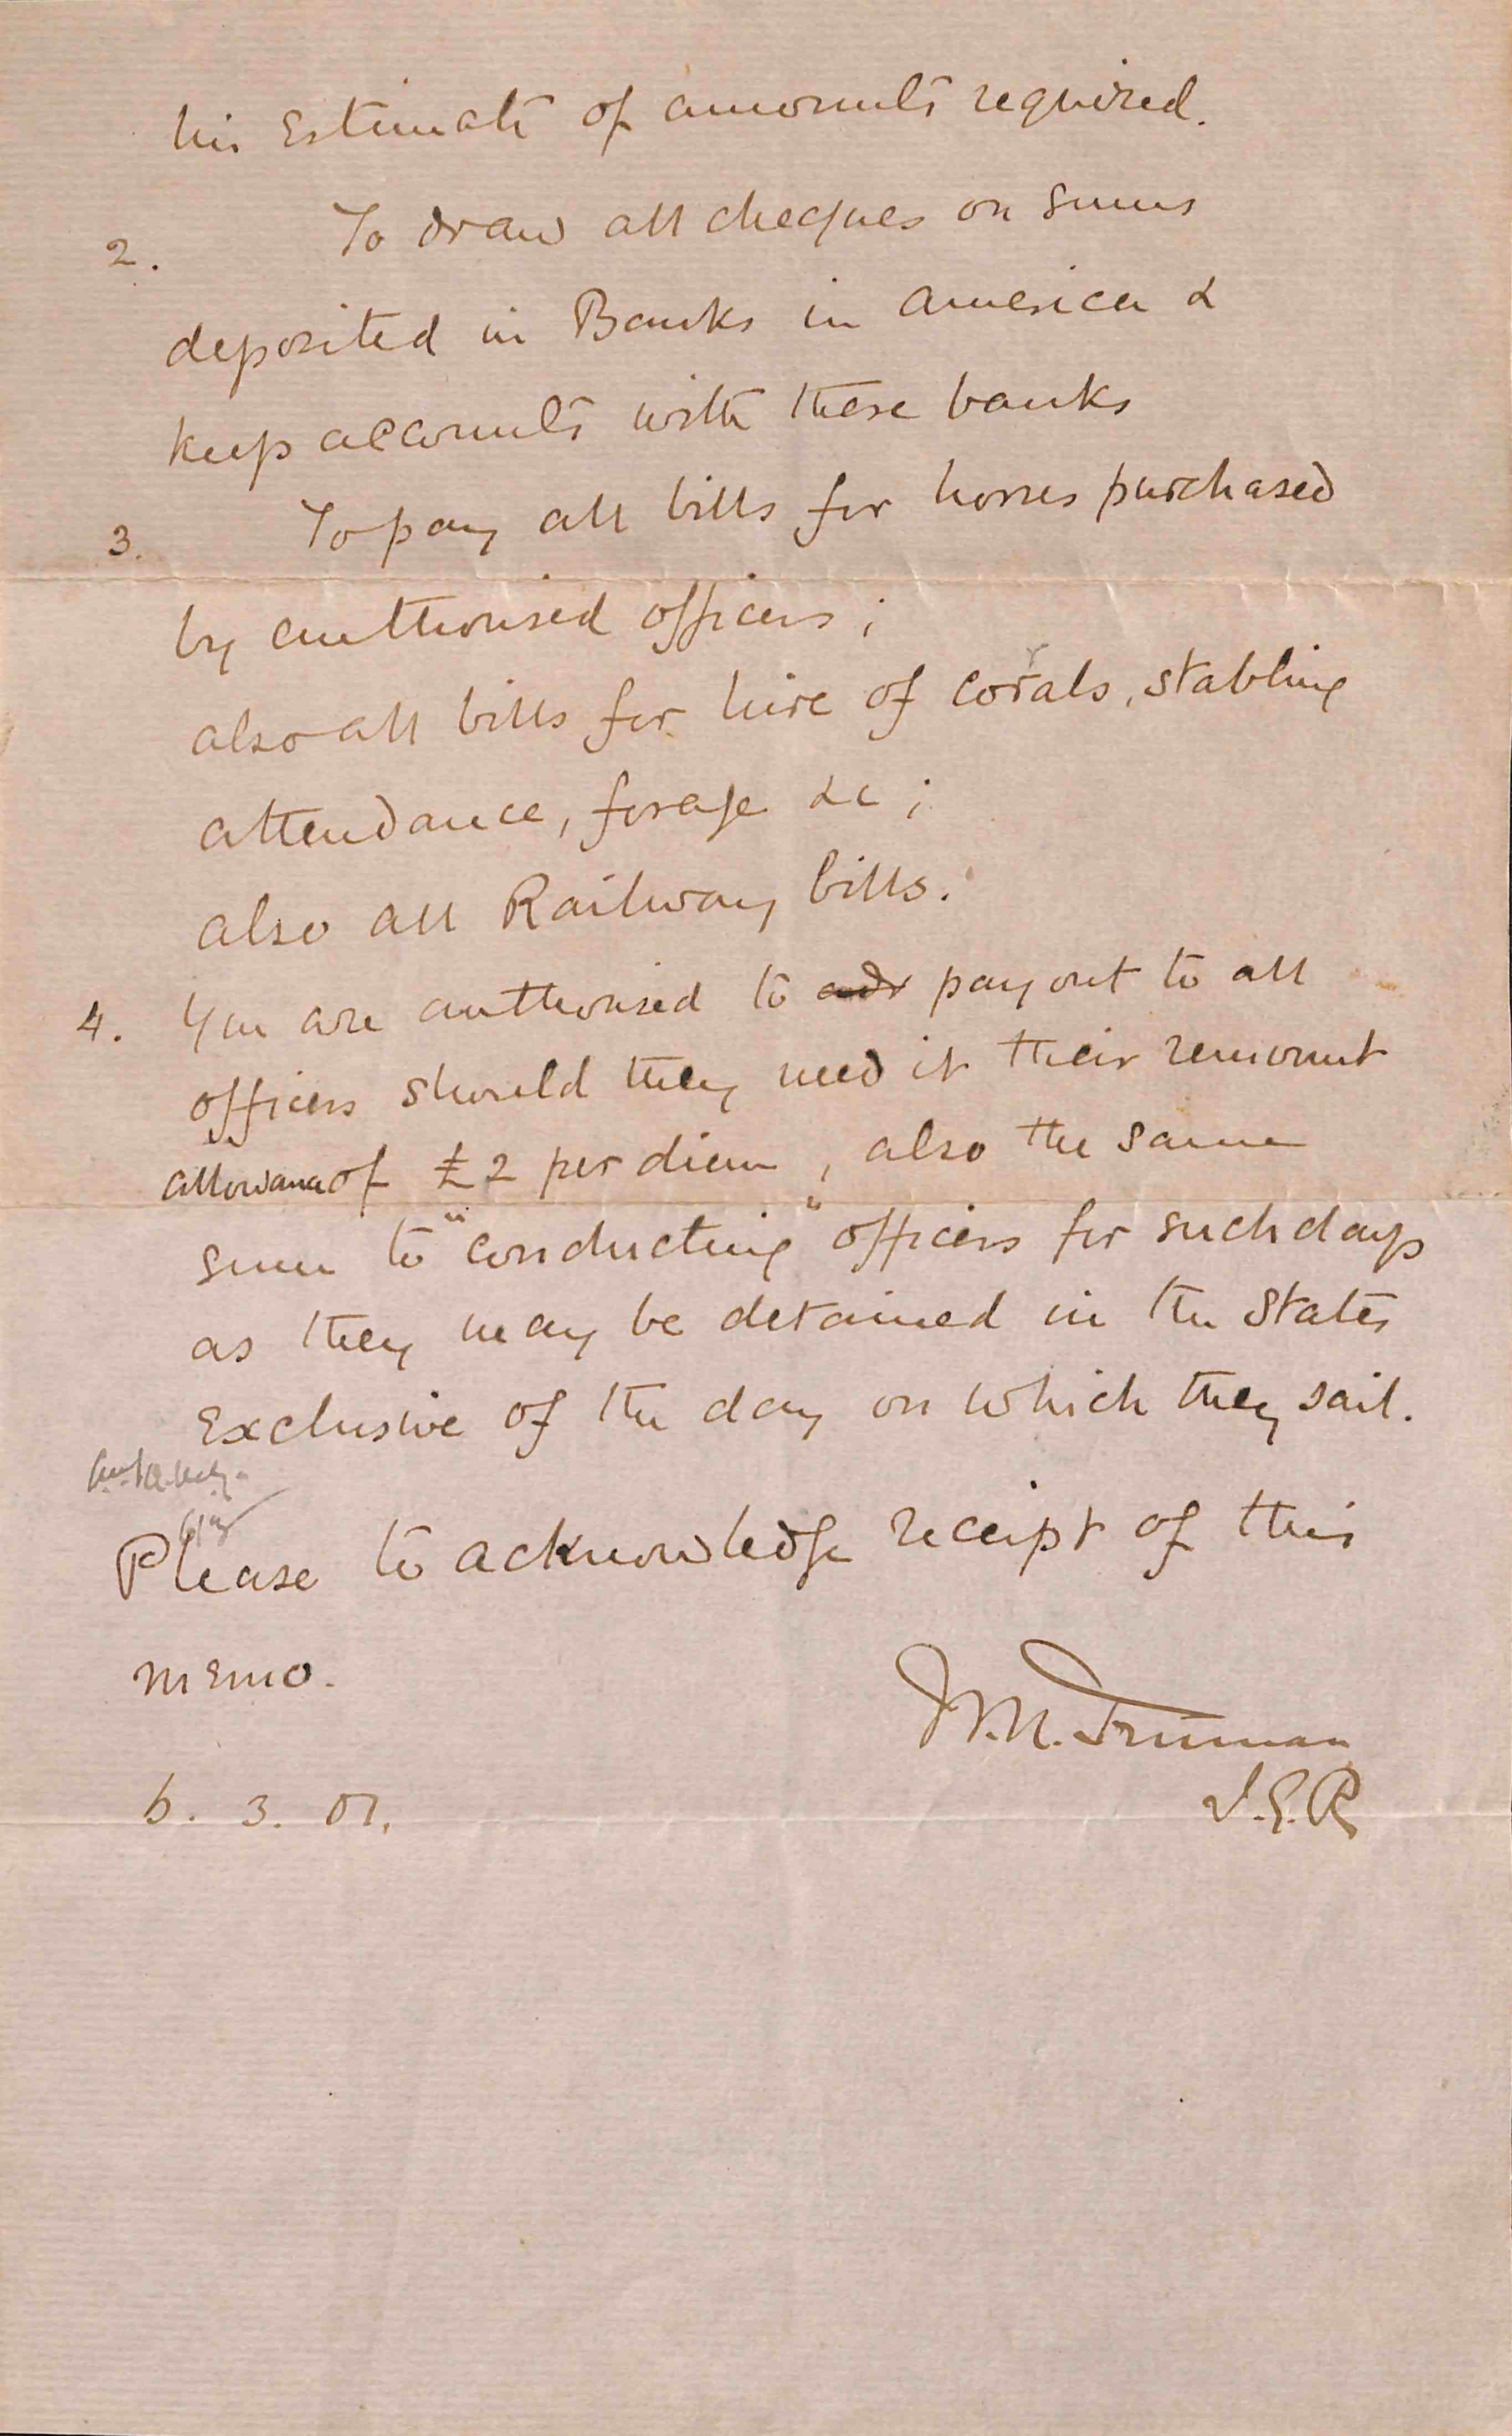 his Estimate of amounts required.
2. To draw all cheques on sums
deposited in Banks in America &
keep accounts with these banks
3. To pay all bills for horses purchased
by authorised officers ;
also all bills for hire of corrals, stabling
attendance, forage &c ;
also all Railway bills.
4. You are authorised to pay out to all
officers should they need it their remount
allowance of £2 per diem, also the same
sum to "conducting" officers for such days
as they may be detained in the States
Exclusive of the day on which they sail.
Please to acknowledge receipt of this
memo.
W.R. Truman
I.G.R
6. 3. 01.